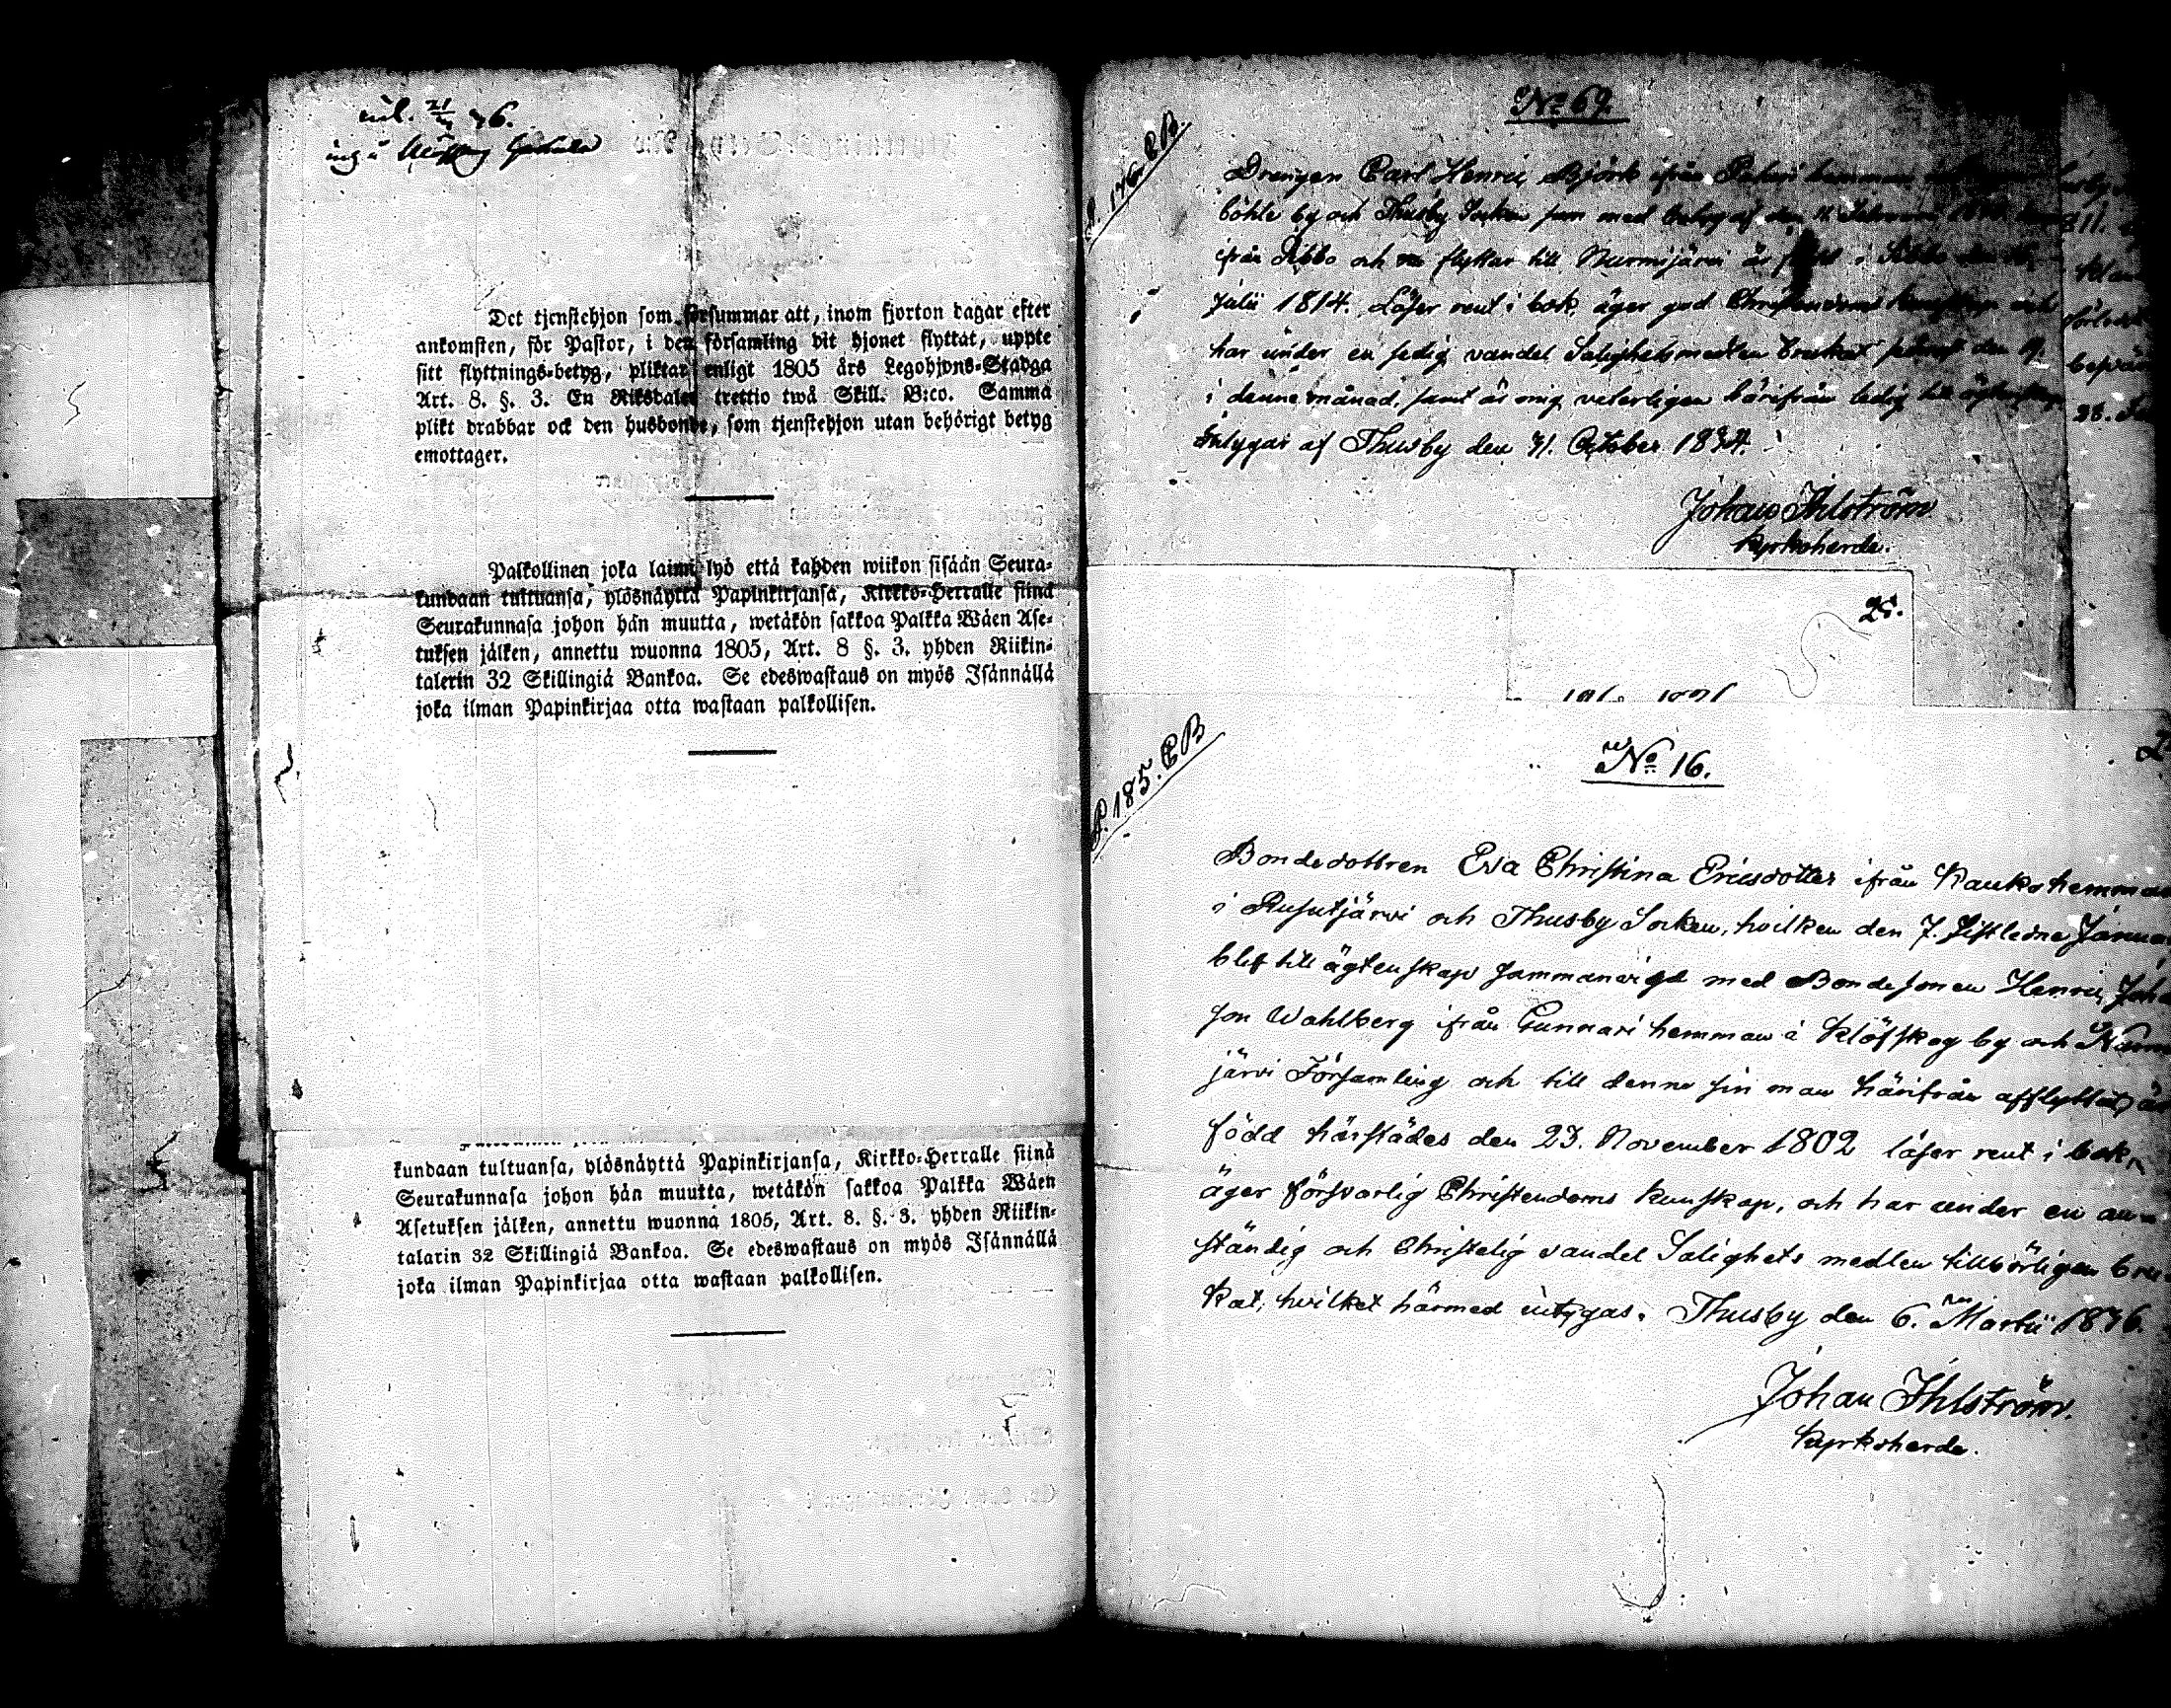 inl. 21/4 36.
Det tjenstehjon som försummar att, inom fjorton dagar efter
ankomsten, för Pastor, i den församling dit hjonet flyttat, uppte
sitt flyttnings-betyg, pliktar enligt 1805 års Legohjons-Stadga
Art. 8. §. 3. En Riksdaler trettio twå Skill. B:co. Samma
plikt drabbar ock den husbonde, som tjenstehjon utan behörigt betyg
emottager.
Palkollinen joka laimin lyö että kahden wiikon sisään Seura-
kundaan tultuansa, ylösnäyttä Papinkirjansa, Kirkko-Herralle siinä
Seurakunnasa johon hän muutta, wetäkön sakkoa Palkka Wäen Ase-
tuksen jälken, annettu wuonna 1805, Art. 8 §. 3. yhden Riikin-
talerin 32 Skillingiä Bankoa. Se edeswastaus on myös Isännällä
joka ilman Papinkirjaa otta wastaan palkollisen.
kundaan tultuansa, ylösnäyttä Papinkirjansa, Kirkko-Herralle siinä
Seurakunnasa johon hän muutta, wetäkön sakkoa Palkka Wäen
Asetuksen jälken, annettu wuonna 1805, Art. 8. §. 3. yhden Riikin-
talarin 32 Skillingiä Bankoa. Se edeswastaus on myös Isännällä
joka ilman Papinkirjaa otta wastaan palkollisen.
P. 176. CB.
No 69.
Drengen Carl Henric Björk ifrån
böhle by och Thusby Socken som med betyg af den
ifrån Sibbo och nu flyttar till Nurmijärvi är född i Sibbo den
Julii 1814. Läser rent i bok, äger god Christendoms kunskap och
har under en sedig vandel Salighetsmedlen brukat senast den 19.
i denne månad, samt är mig veterligen härifrån ledig till ägtenskap
intygar af Thusby den 31. October 1834.
Johan Ihlström
Kyrkoherde.
811.
28.
25.
P. 185. CB
No 16.
Bondedottren Eva Christina Ericsdotter ifrån Kauko hemman
i Rusutjärvi och Thusby Socken, hvilken den 7. sistledne Janua
blef till ägtenskap sammanvigd med Bondesonen Henric Joha
son Wahlberg ifrån Gunnari hemman i Klöfskog by och Nurm
järvi Församling och till denne sin man härifrån afflyttat, är
född härstädes den 23. November 1802 läser rent i bok,
äger försvarlig Christendoms kunskap, och har under en an-
ständig och Christelig vandel Salighets medlen tillbörligen bru-
kat, hvilket härmed intygas. Thusby den 6. Martii 1836.
Johan Ihlström.
Kyrkoherde.